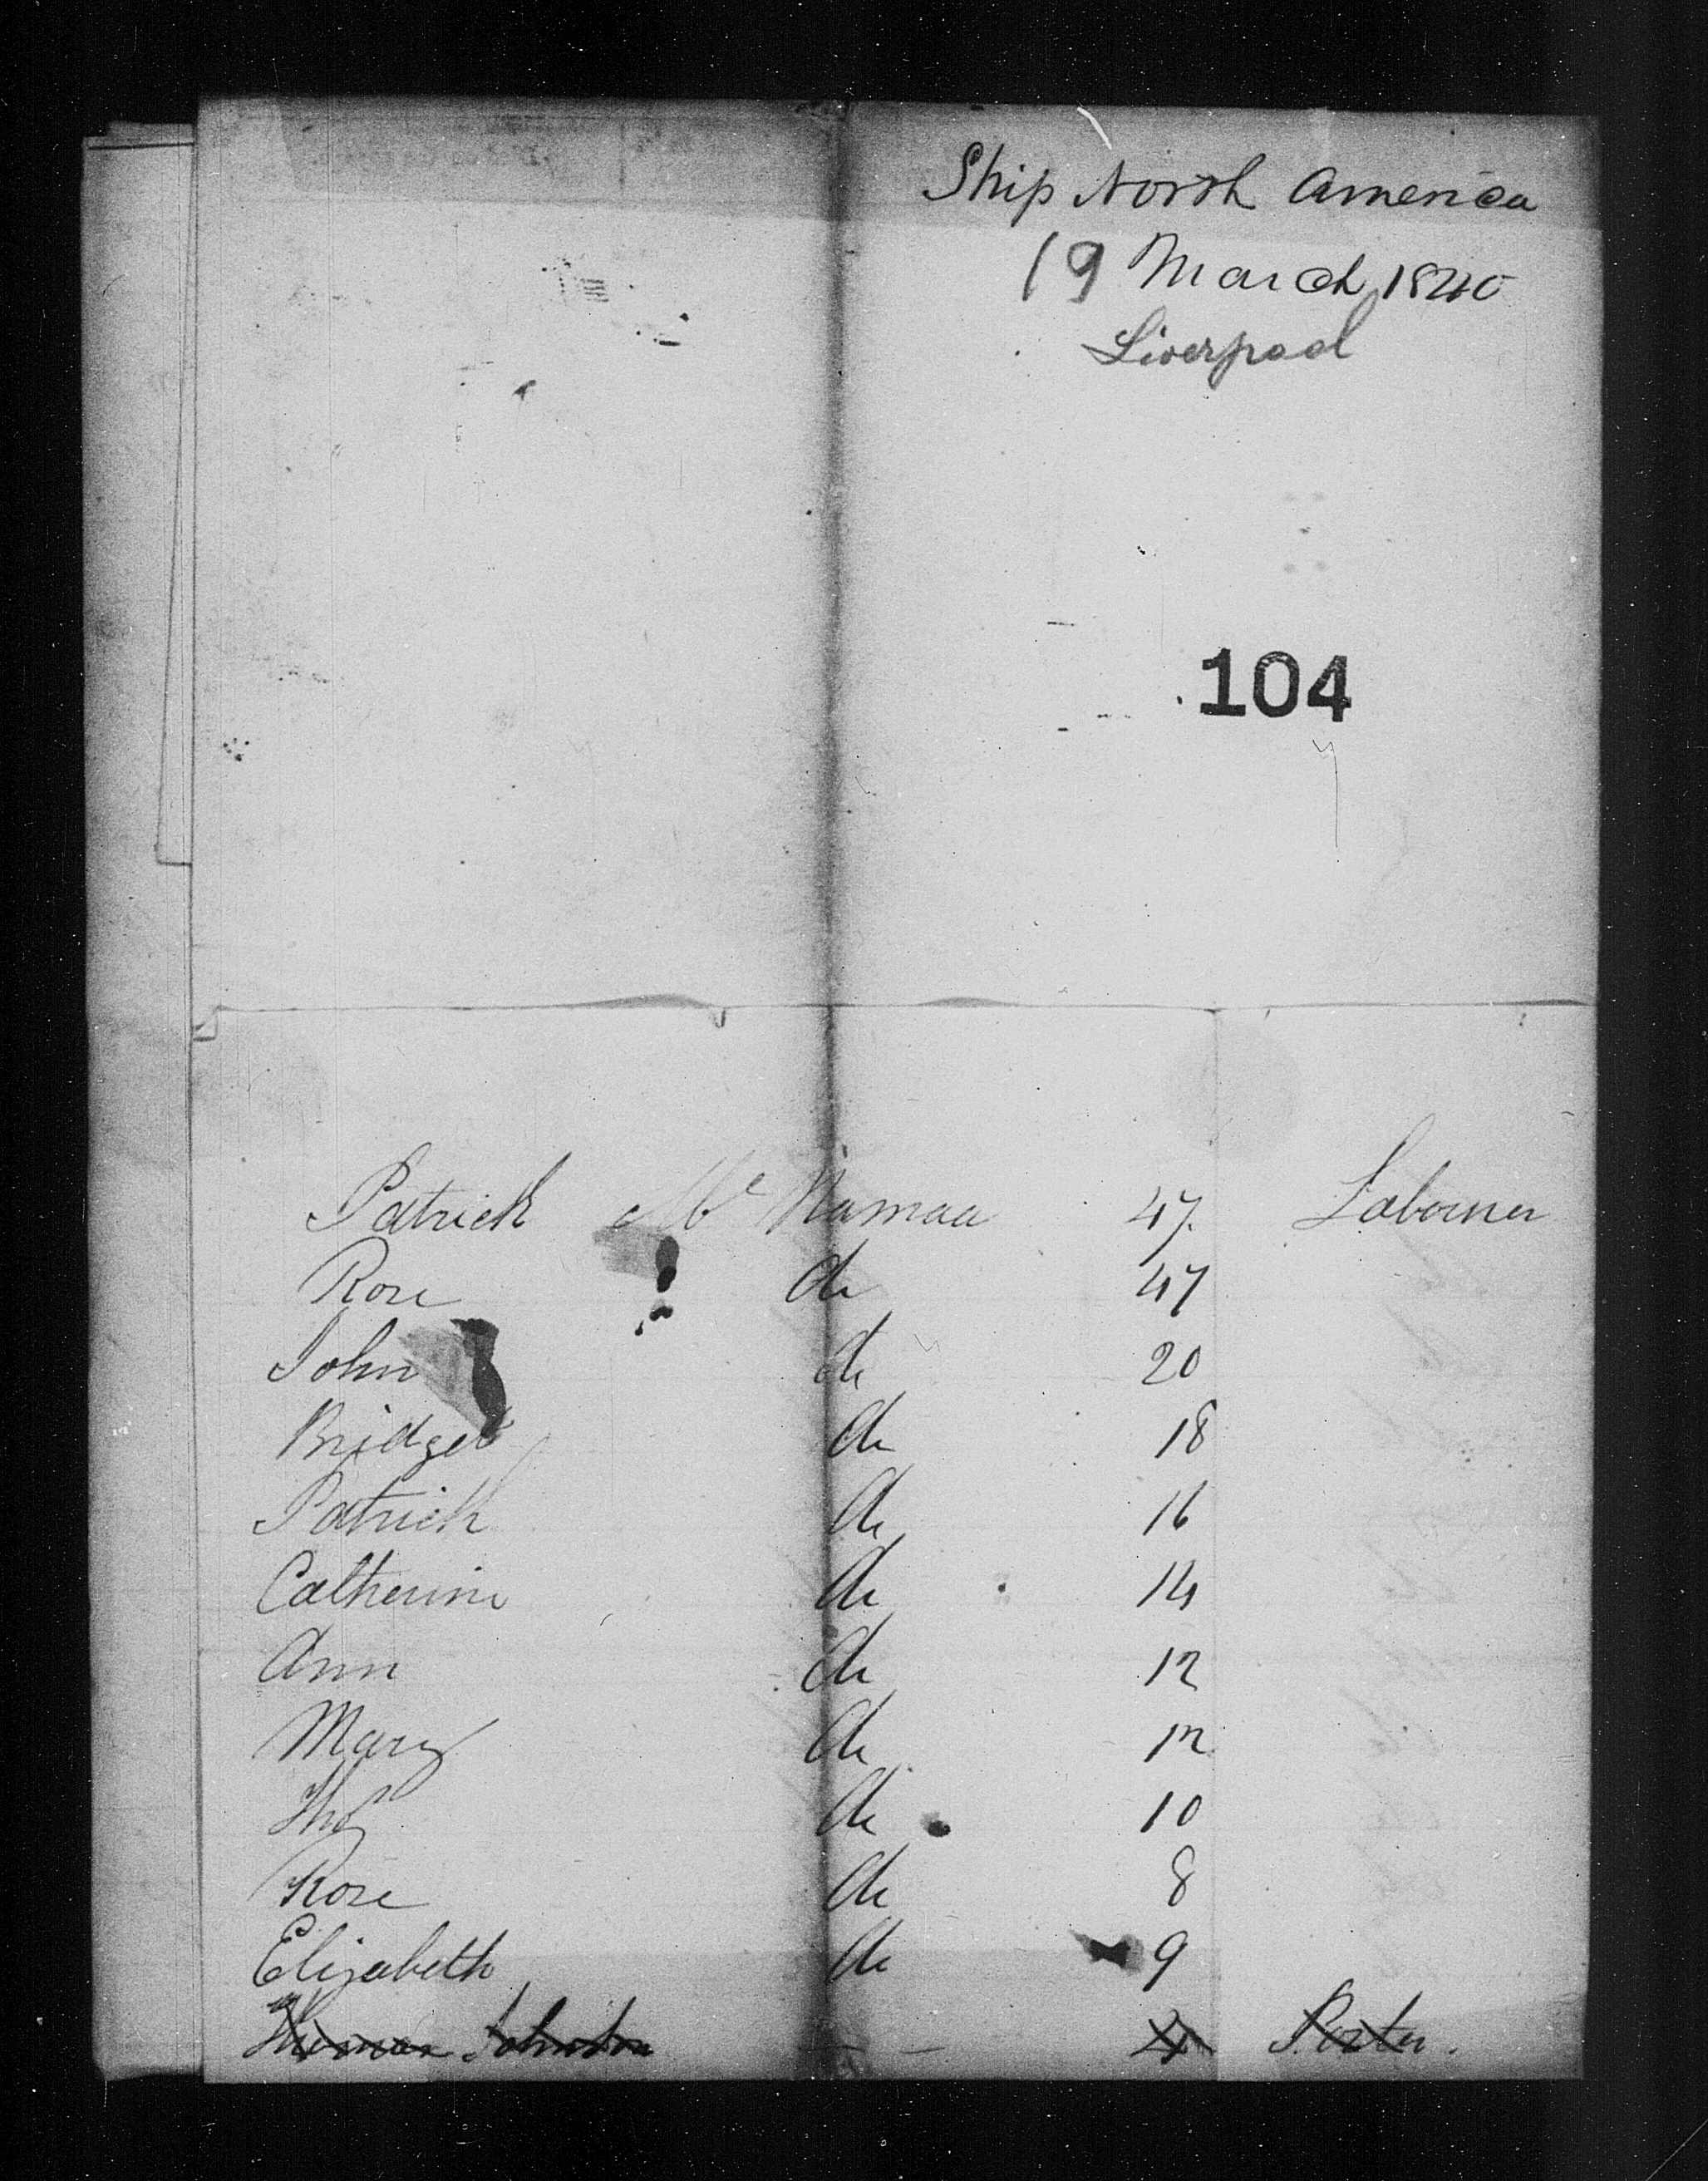 Ship North America
19 March 1840
Liverpool
104
Patrick Mc Namaa 47 Labourer
Rose do 47
John do 20
Bridget do 18
Patrick do 16
Catherine do 14
Ann do 12
Mary do 12
Thos do 10
Rose do 8
Elizabeth do 9
Thomas Johnston 24 Porter.